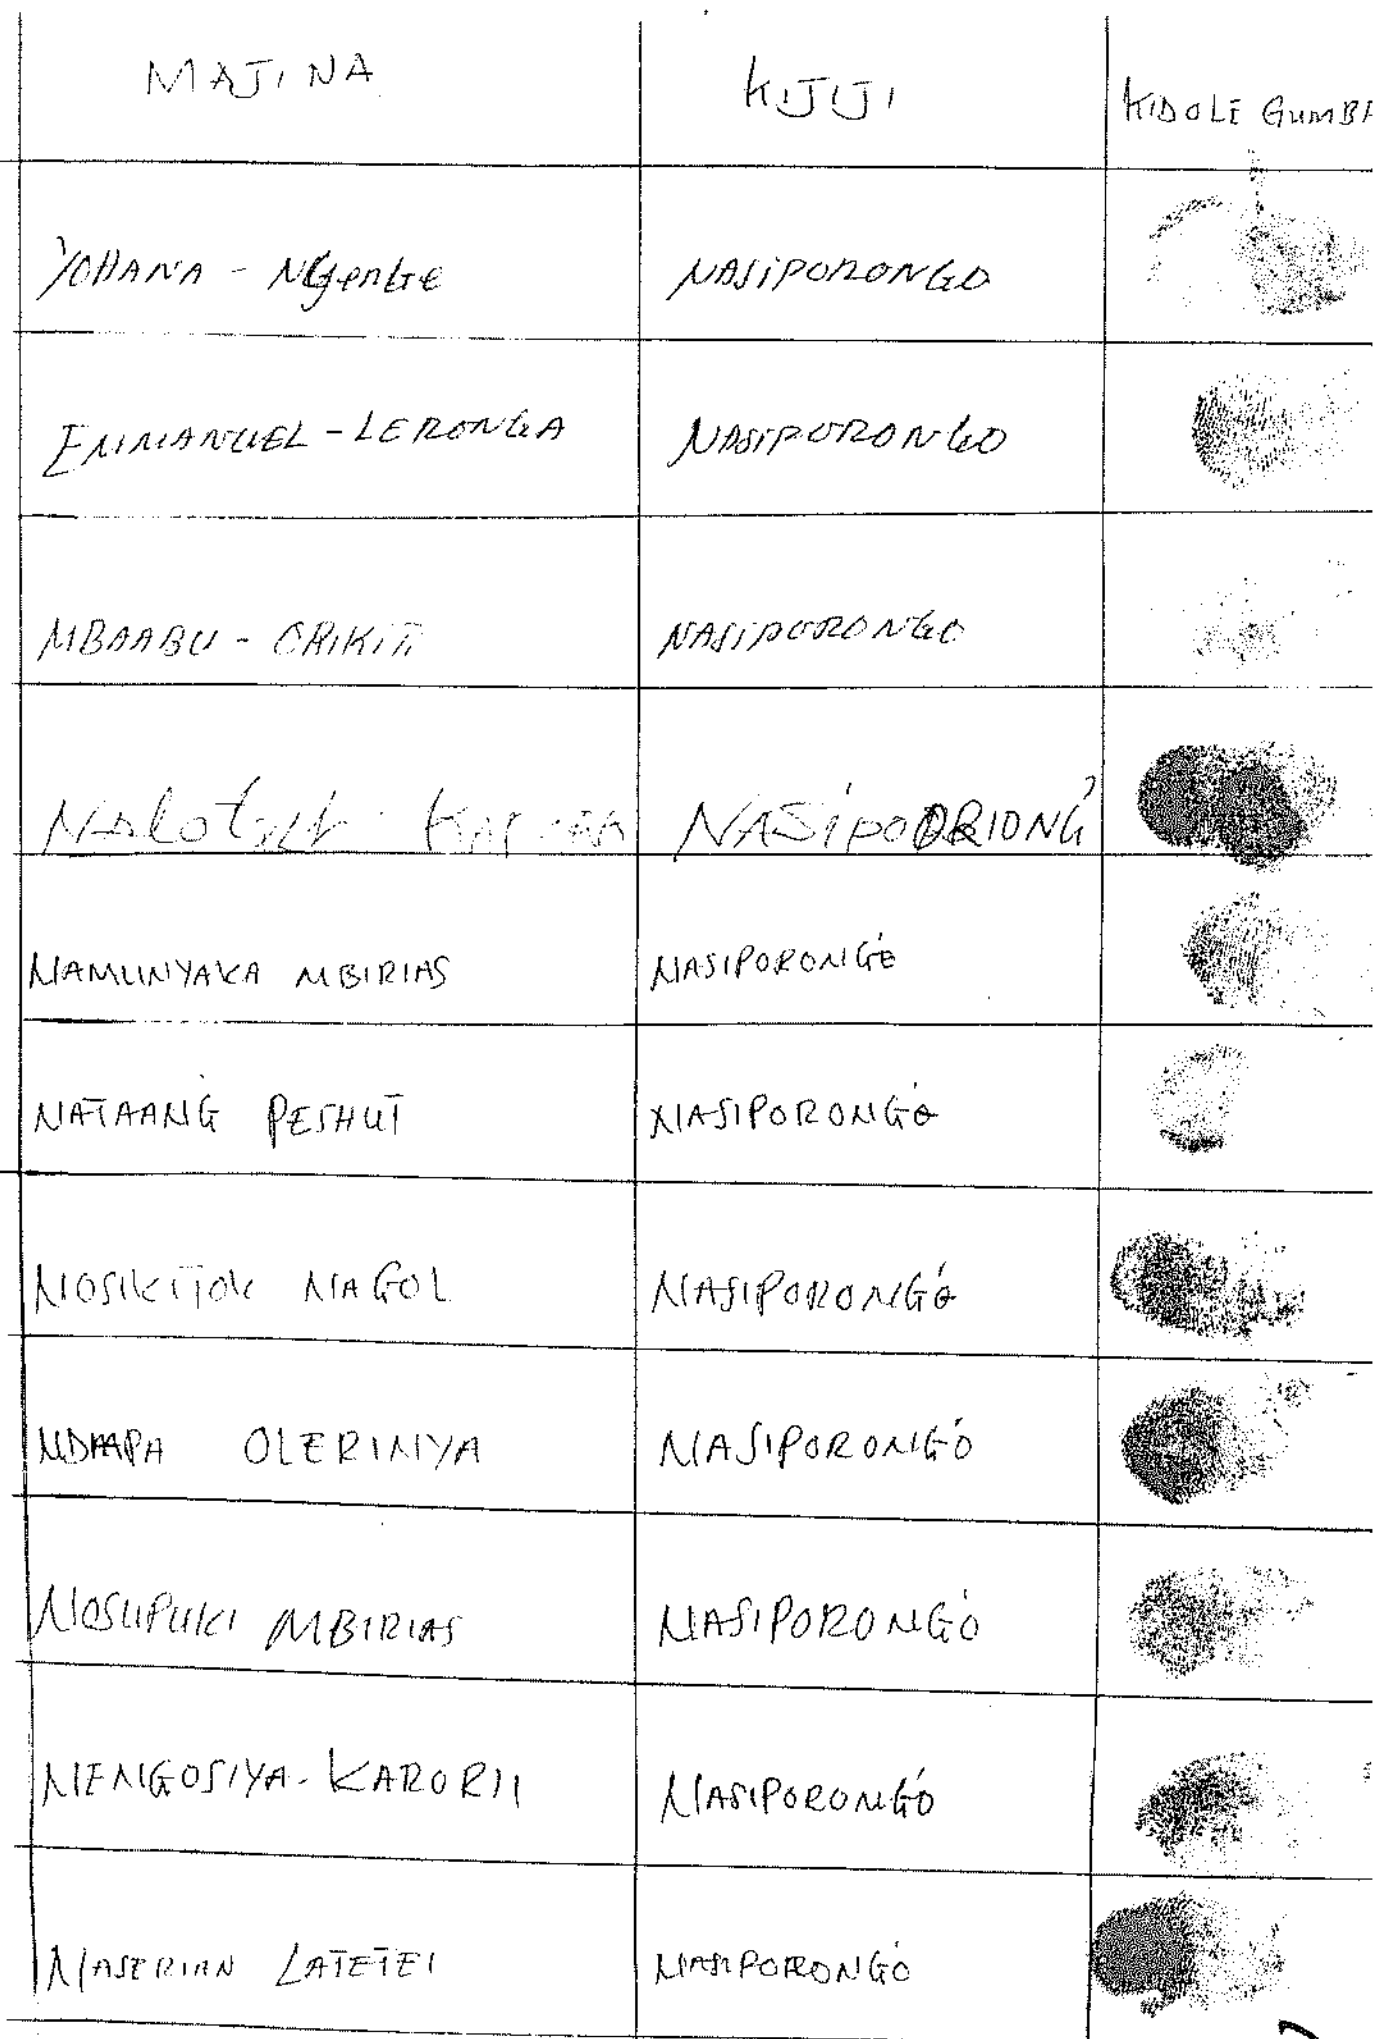 MAJINA KIJIJI KIDOLE GUMBA
YOHANA - NGenGe NASIPORONGO
EMMANUEL - LERONGA NASIPORONGO
MBAABU - ORIKITI NASIPORONGO
NASIPOORIONG'
NAMUNYAKA MBIRIAS NASIPORONGO
NATAANG PESHUT NASIPORONGO
NOSIKITJOK NAGOL NASIPORONGO
NDAAPA OLERINYA NASIPORONGO
NOSUPUKI MBIRIAS NASIPORONGO
NENGOSIYA - KARORII NASIPORONGO
NASERIAN LATETEI NASIPORONGO